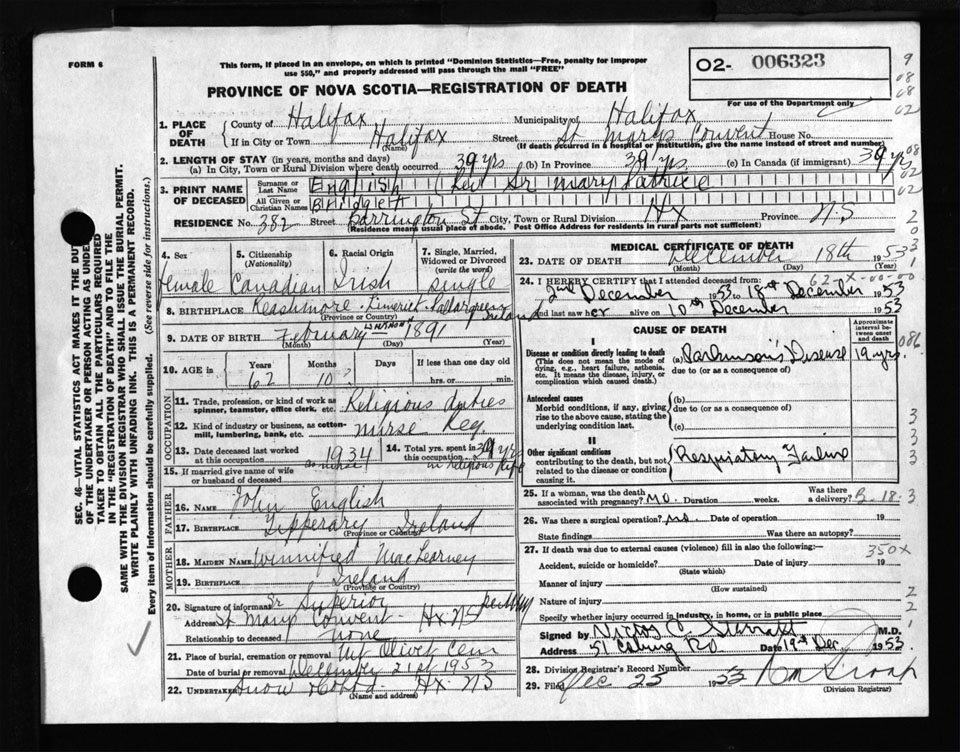 FORM 6
This form, if placed in an envelope, on which is printed "Dominion Statistics—Free, penalty for improper
use $50," and properly addressed will pass through the mail "FREE"
O2- 006323
For use of the Department only
PROVINCE OF NOVA SCOTIA—REGISTRATION OF DEATH
1. PLACE OF DEATH { County of Halifax Municipality of Halifax
If in City or Town Halifax (Name) Street St Marys Convent House No.
(If death occurred in a hospital or institution, give the name instead of street and number)
2. LENGTH OF STAY (in years, months and days)
(a) In City, Town or Rural Division where death occurred 39 yrs (b) In Province 39 yrs (c) In Canada (if immigrant) 39 yrs
3. PRINT NAME OF DECEASED { Surname or Last Name English (Rev Sr Mary
All Given or Christian Names Bridgett
RESIDENCE No. 382 Street Barrington St City, Town or Rural Division Hx Province N.S
(Residence means usual place of abode. Post Office Address for residents in rural parts not sufficient)
4. Sex female
5. Citizenship (Nationality) Canadian
6. Racial Origin Irish
7. Single, Married, Widowed or Divorced (write the word) single
8. BIRTHPLACE Limerick Ireland
(Province or Country)
9. DATE OF BIRTH February 1891
(Month) (Day)
10. AGE in { Years 62 Months 10 Days If less than one day old
hrs. or min.
OCCUPATION
11. Trade, profession, or kind of work as spinner, teamster, office clerk, etc. Religious duties
12. Kind of industry or business, as cotton-mill, lumbering, bank, etc. nurse Reg
13. Date deceased last worked at this occupation 1934 as nurse
14. Total yrs. spent in this occupation yrs in religious life
15. If married give name of wife or husband of deceased
FATHER
16. Name John English
17. Birthplace Tipperary Ireland
(Province or Country)
MOTHER
18. Maiden Name Winnifred
19. Birthplace Ireland
(Province or Country)
20. Signature of informant Sr Superior
Address St Marys Convent Hx NS
Relationship to deceased none
21. Place of burial, cremation or removal Mt Olivet Cem
Date of burial or removal December 21st 1953
22. Undertaker Snow Hx-NS
(Name and address)
MEDICAL CERTIFICATE OF DEATH
23. DATE OF DEATH December 18th 1953
(Month) (Day) (Year)
24. I HEREBY CERTIFY that I attended deceased from
2nd December 1953 to 18th December 1953
and last saw her alive on 10th December 1953
CAUSE OF DEATH
Approximate interval between onset and death
I
Disease or condition directly leading to death (a) Parkinson's Disease 19 yrs.
(This does not mean the mode of dying, e.g., heart failure, asthenia, etc. It means the disease, injury, or complication which caused death.)
due to (or as a consequence of)
Antecedent causes
Morbid conditions, if any, giving rise to the above cause, stating the underlying condition last
(b)
due to (or as a consequence of)
(c)
II
Other significant conditions
contributing to the death, but not related to the disease or condition causing it.
Respiratory Failure
25. If a woman, was the death associated with pregnancy? no. Duration weeks. Was there a delivery?
26. Was there a surgical operation? no. Date of operation 19
State findings Was there an autopsy?
27. If death was due to external causes (violence) fill in also the following:— 350X
Accident, suicide or homicide? Date of injury 19
(State which)
Manner of injury
(How sustained)
Nature of injury
Specify whether injury occurred in industry, in home, or in public place
Signed by M.D.
Address 51 Coburg Rd Date 19th Dec 1953
28. Division Registrar's Record Number
29. Filed Dec 23 1953
(Division Registrar)
SEC. 46—VITAL STATISTICS ACT MAKES IT THE DUTY
OF THE UNDERTAKER OR PERSON ACTING AS UNDERTAKER
TO OBTAIN ALL THE PARTICULARS REQUIRED
IN THE "REGISTRATION OF DEATH" AND TO FILE THE
SAME WITH THE DIVISION REGISTRAR WHO SHALL ISSUE THE BURIAL PERMIT.
WRITE PLAINLY WITH UNFADING INK. THIS IS A PERMANENT RECORD.
Every item of information should be carefully supplied. (See reverse side for instructions.)